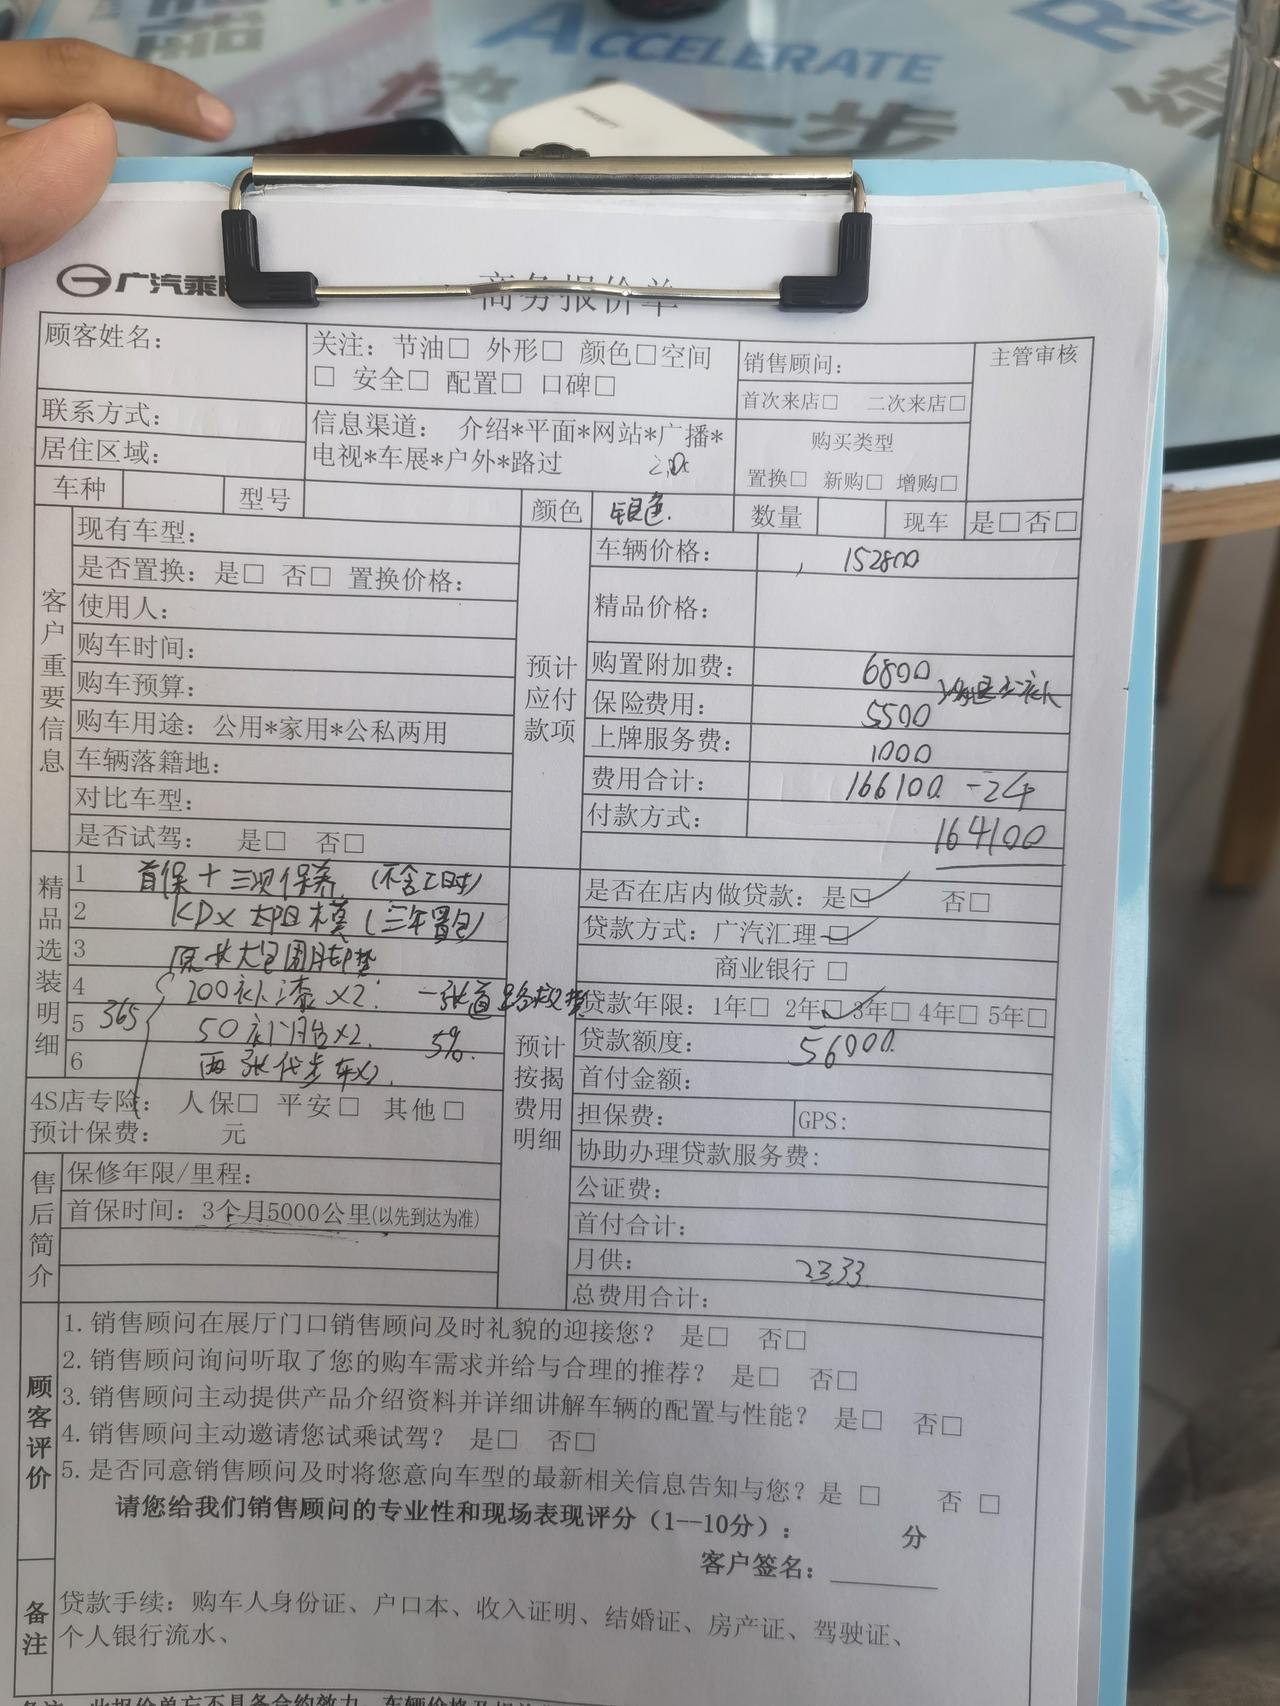 ACCELERATE
一步
广汽乘
商务报价单
顾客姓名：
关注：节油□ 外形□ 颜色□空间
□ 安全□ 配置□ 口碑□
销售顾问：
主管审核
首次来店□ 二次来店□
联系方式：
信息渠道： 介绍*平面*网站*广播*
电视*车展*户外*路过
购买类型
居住区域：
置换□ 新购□ 增购□
车种
型号
颜色
银色
数量
现车
是□否□
客户重要信息
现有车型：
是否置换：是□ 否□ 置换价格：
使用人：
购车时间：
购车预算：
购车用途：公用*家用*公私两用
车辆落籍地：
对比车型：
是否试驾： 是□ 否□
预计应付款项
车辆价格： 152800
精品价格：
购置附加费： 6800
保险费用： 5500
上牌服务费： 1000
费用合计： 166100 -2千
付款方式： 164100
精品选装明细
1 首保+三次保养（不含工时）
2 KDX太阳膜（三年质包）
3 原厂大包围脚垫
4 200补漆X2 一张道路救援
5 365 50 X2 5%
6 两张代步车X2
4S店专险： 人保□ 平安□ 其他□
预计保费： 元
售后简介
保修年限/里程：
首保时间：3个月5000公里(以先到达为准)
预计按揭费用明细
是否在店内做贷款：是□ 否□
贷款方式：广汽汇理□
商业银行 □
贷款年限：1年□ 2年□ 3年□ 4年□ 5年□
贷款额度： 56000
首付金额：
担保费：
GPS：
协助办理贷款服务费：
公证费：
首付合计：
月供： 2333
总费用合计：
顾客评价
1.销售顾问在展厅门口销售顾问及时礼貌的迎接您？ 是□ 否□
2.销售顾问询问听取了您的购车需求并给与合理的推荐？ 是□ 否□
3.销售顾问主动提供产品介绍资料并详细讲解车辆的配置与性能？ 是□ 否□
4.销售顾问主动邀请您试乘试驾？ 是□ 否□
5.是否同意销售顾问及时将您意向车型的最新相关信息告知与您？是 □ 否 □
请您给我们销售顾问的专业性和现场表现评分（1--10分）： 分
客户签名：
备注
贷款手续：购车人身份证、户口本、收入证明、结婚证、房产证、驾驶证、
个人银行流水、